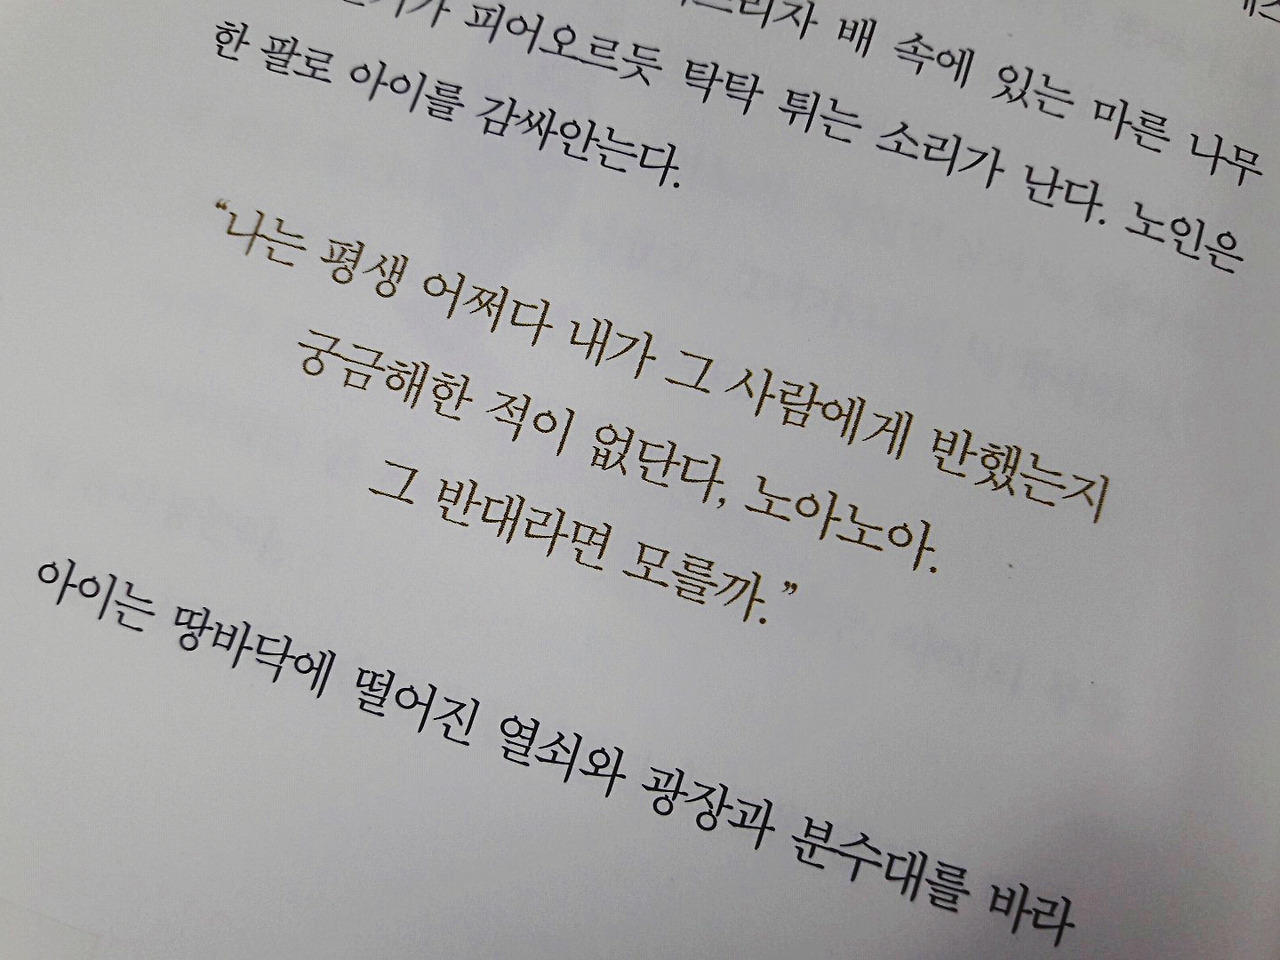 배 속에 있는 마른 나무
피어오르듯 탁탁 튀는 소리가 난다. 노인은
한 팔로 아이를 감싸안는다.
“나는 평생 어쩌다 내가 그 사람에게 반했는지
궁금해한 적이 없단다, 노아노아.
그 반대라면 모를까.”
아이는 땅바닥에 떨어진 열쇠와 광장과 분수대를 바라